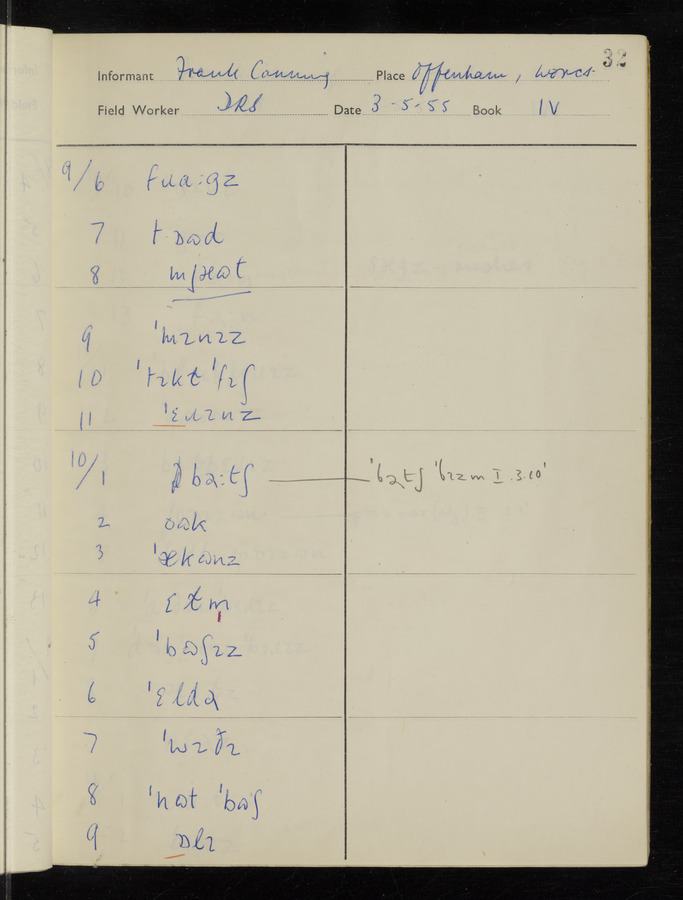 32
Informant Frank Canning Place Offenham, Worcs.
Field Worker DRS Date 3-5-55 Book IV
9/6 fɹɑ:gz
7 tɒɷd
8 njɛɷt
9 ˈmɪnɪz
10 ˈtɪkɫ ˈfɪʃ
11 ˈɛɹɪnz
10/1 bɑ:tʃ ˈbɑtʃ ˈbɪzm I.3.10ˈ
2 ɔɷk
3 ˈækɷnz
4 ɛɫm
5 ˈbɷʃɪz
6 ˈɛldɑ
7 ˈwɪðɪ
8 ˈnɷt ˈbɷʃ
9 ɒlɪ